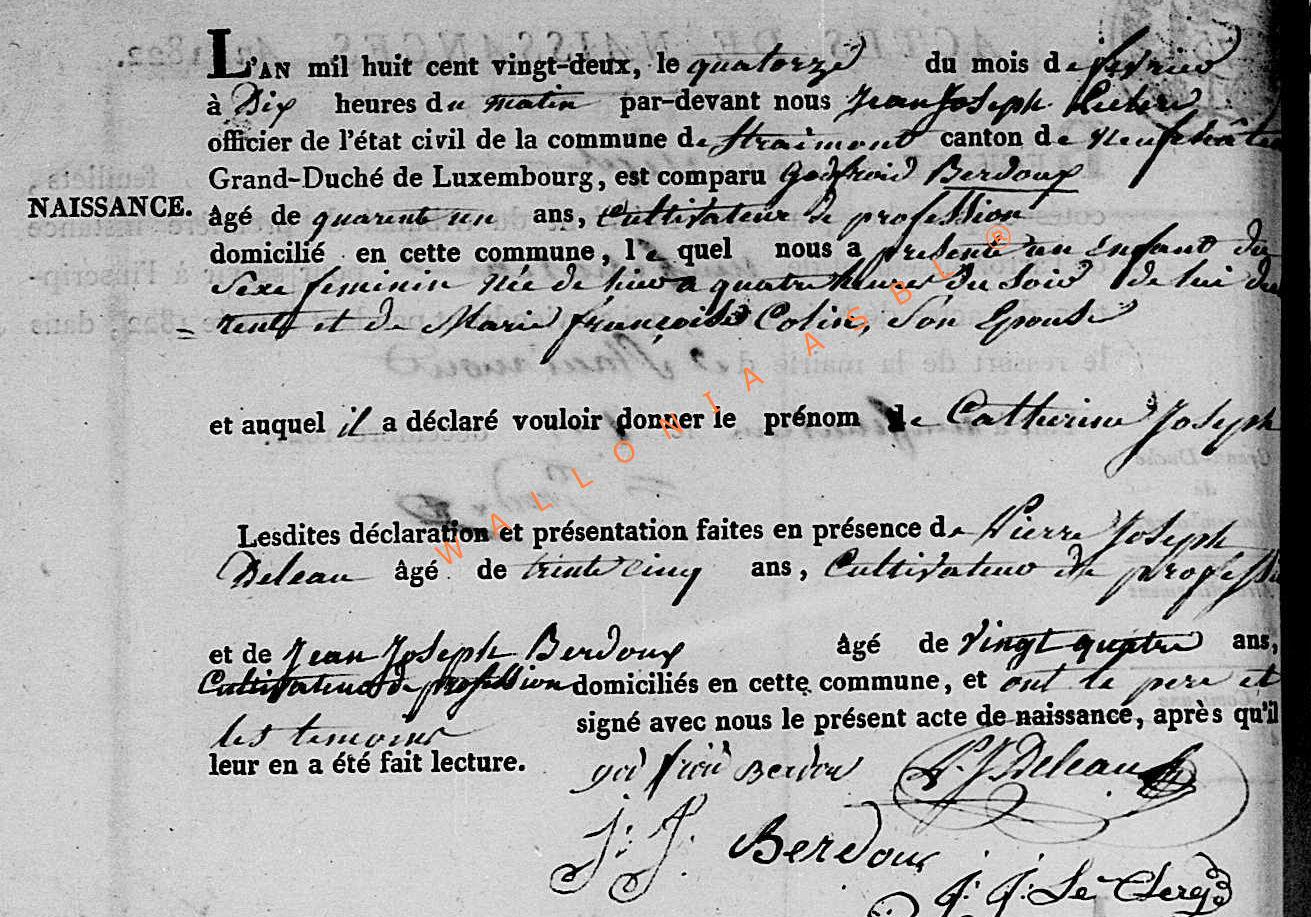 L'AN mil huit cent vingt-deux, le quatorze du mois de fevrier
à Dix heures du matin par-devant nous Jean Joseph
officier de l'état civil de la commune de Straimont canton de Neufchâte
Grand-Duché de Luxembourg, est comparu Godfroid Berdoux
NAISSANCE.
âgé de quarent un ans, Cultivateur de profession
domicilié en cette commune, le quel nous a presenté un enfant du
Sexe feminin Née de hier a quatre heures du soir de lui du
= rent et de Marie françoise Colin, Son Epouse
et auquel il a déclaré vouloir donner le prénom de Catherine Joseph
Lesdites déclaration et présentation faites en présence de Pierre Joseph
Deleau âgé de trinte cinq ans, Cultivateur de professi
et de Jean Joseph Berdoux âgé de Vingt quatre ans,
Cultivateur de profession domiciliés en cette commune, et ont le pere et
les temoins signé avec nous le présent acte de naissance, après qu'il
leur en a été fait lecture.
god froid Berdou P. J. Deleau
J: J. Berdoux
J: J: Le Clerq
WALLONIA ASBL ®